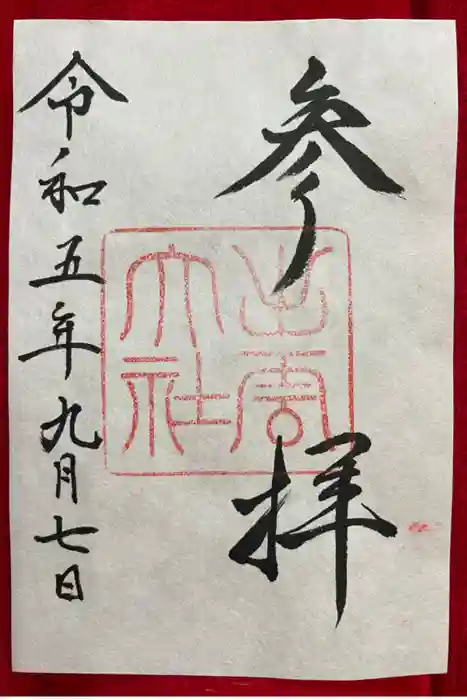 参拝
出雲
大社
令和五年九月七日